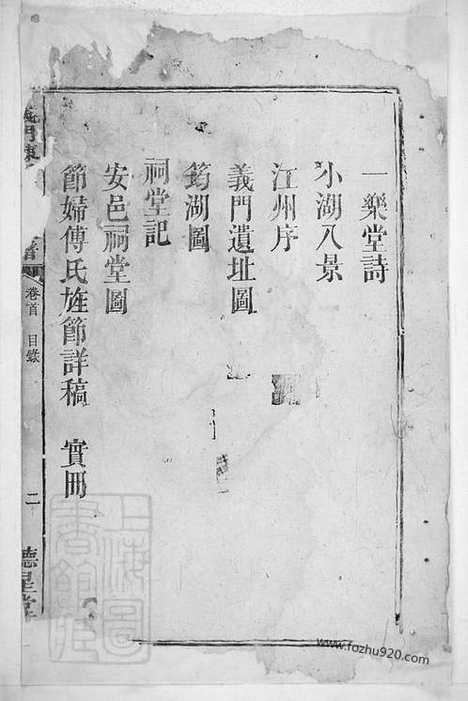 一樂堂詩
小湖八景
江州序
義門遺址圖
筠湖圖
祠堂記
安邑祠堂圖
節婦傅氏旌節詳稿　實冊
義門陳
譜
卷首　目錄
二
德星堂
上海圖書館藏
www.fozhu920.com